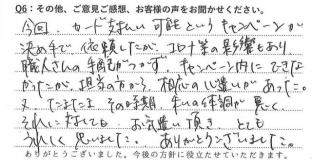 Q6：その他、ご意見ご感想、お客様の声をお聞かせください。
今回、カード支払い可能というキャンペーンが
決め手で依頼したが、コロナ等の影響もあり
職人さんの手配がつかず、キャンペーン内にできな
かったが、担当の方から相応の心遣いがあった。
又、たまたまその時期、私の体調が悪く、
それに対しても、お気遣い頂き、とても
うれしく思いました。ありがとうございました。
ありがとうございました。今後の方針に役立たせていただきます。